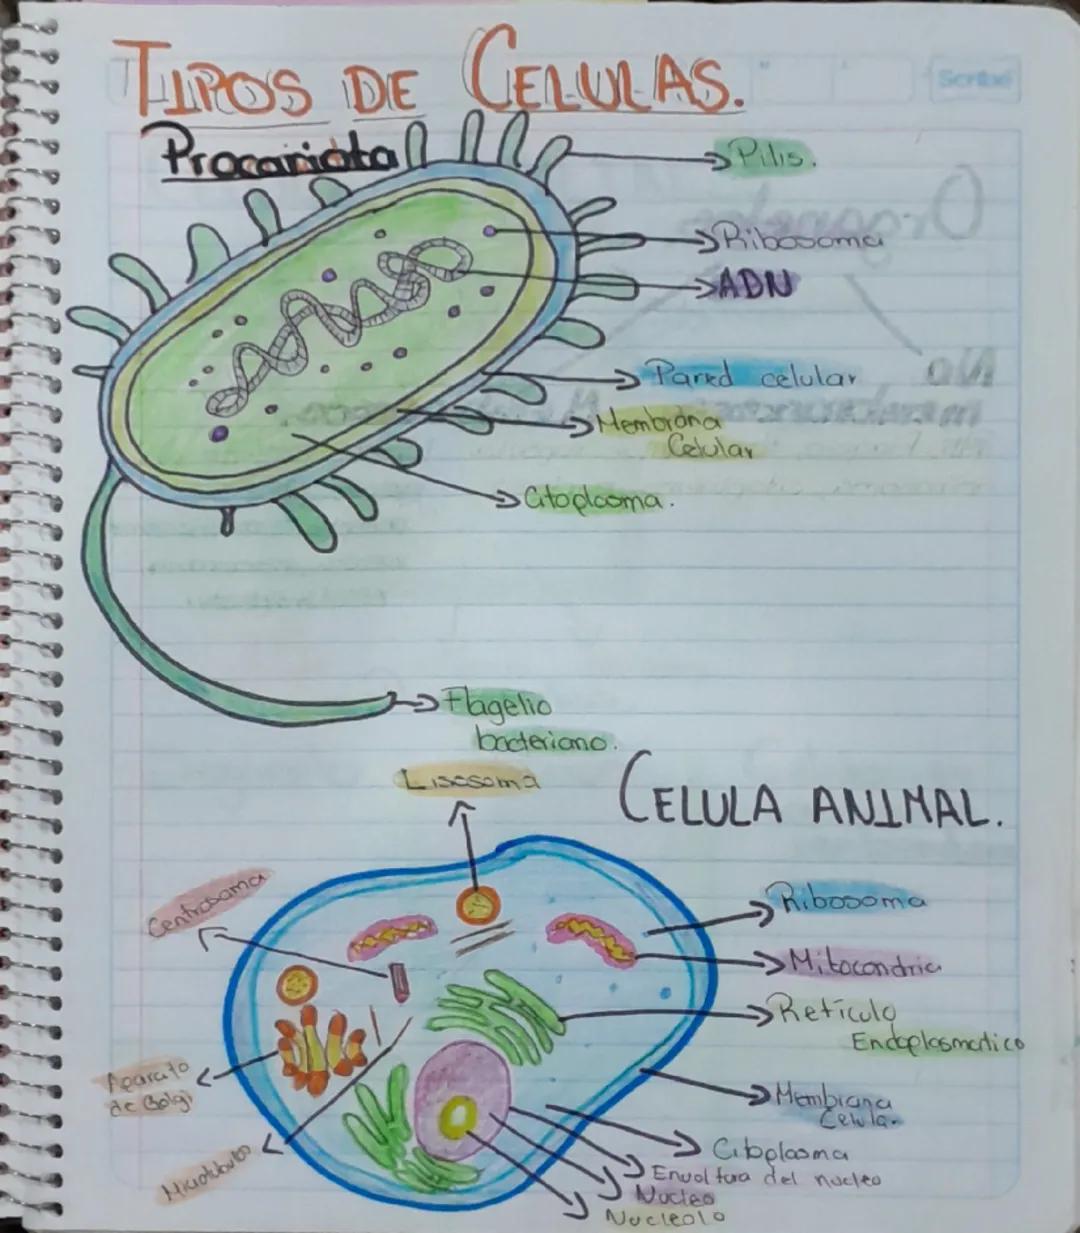 TIPOS DE CELULAS.
Scribe
Procariota
Pilis.
Ribosoma
ADN
Pared celular
Membrana
Celular
Citoplasma.
Flagelio
bacteriano.
CELULA ANIMAL.
Lisosoma
Centrosoma
Ribosoma
Mitocondria
Retículo
Endoplasmatico
Aparato
de Golgi
Membrana
Celular
Citoplasma
Envoltura del nucleo
Nucleo
Nucleolo